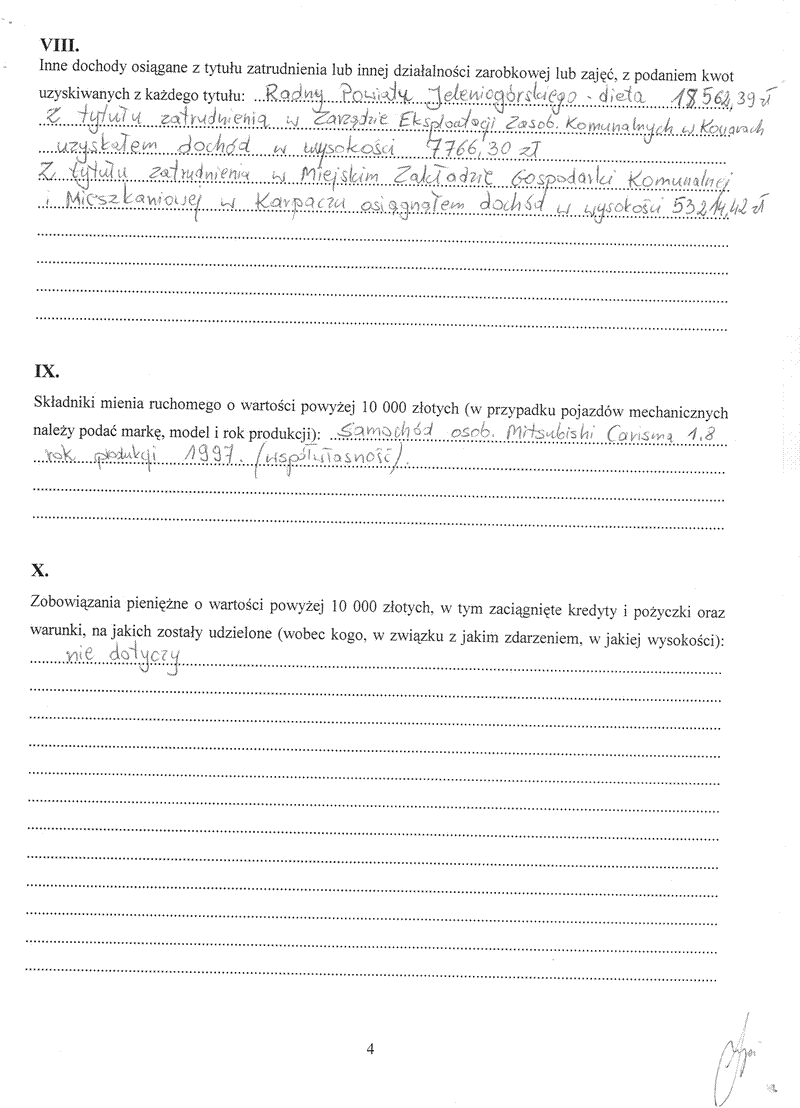 VIII.
Inne dochody osiągane z tytułu zatrudnienia lub innej działalności zarobkowej lub zajęć, z podaniem kwot
uzyskiwanych z każdego tytułu: Radny Powiatu Jeleniogórskiego - dieta 18 562,39 zł
Z tytułu zatrudnienia w Zarządzie Eksploatacji Zasob. Komunalnych w Kowarach
uzyskałem dochód w wysokości 7766,30 zł
Z tytułu zatrudnienia w Miejskim Zakładzie Gospodarki Komunalnej
i Mieszkaniowej w Karpaczu osiągnąłem dochód w wysokości 53214,42 zł
IX.
Składniki mienia ruchomego o wartości powyżej 10 000 złotych (w przypadku pojazdów mechanicznych
należy podać markę, model i rok produkcji): Samochód osob. Mitsubishi Carisma 1,8
rok produkcji 1997. (współwłasność).
X.
Zobowiązania pieniężne o wartości powyżej 10 000 złotych, w tym zaciągnięte kredyty i pożyczki oraz
warunki, na jakich zostały udzielone (wobec kogo, w związku z jakim zdarzeniem, w jakiej wysokości):
nie dotyczy
4